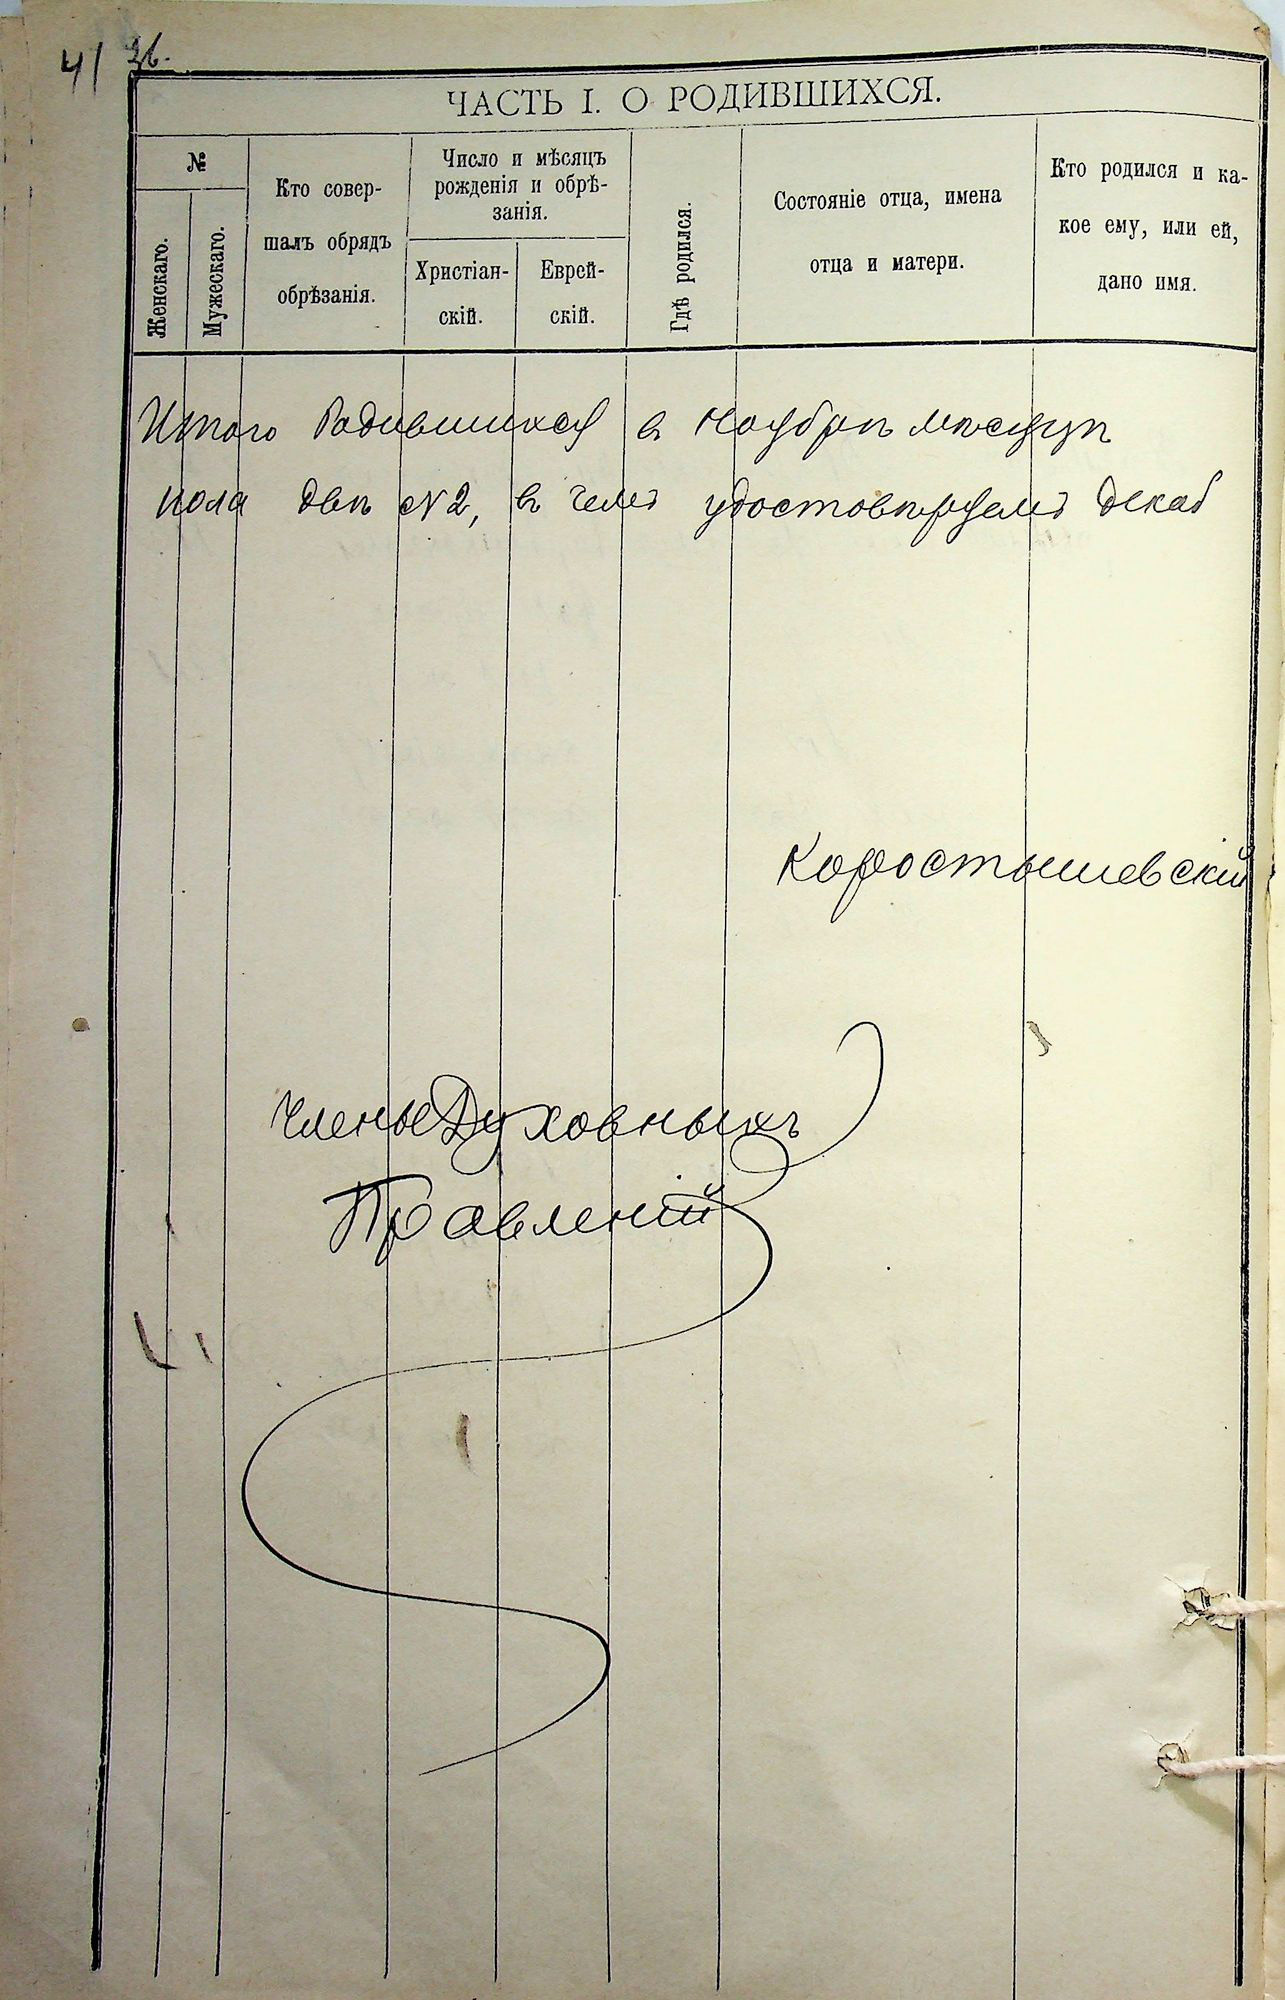 41 36.
ЧАСТЬ I. О РОДИВШИХСЯ.
№
Женскаго.
Мужескаго.
Кто совер-
шалъ обрядъ
обрѣзанія.
Число и мѣсяцъ
рожденія и обрѣ-
занія.
Христіан-
скій.
Еврей-
скій.
Гдѣ родился.
Состояніе отца, имена
отца и матери.
Кто родился и ка-
кое ему, или ей,
дано имя.
Итого Родившихся в Ноябрѣ мѣсяцѣ
пола двѣ №2, в чемъ удостовѣряемъ декаб
Коростышевскій
Члены Духовныхъ
Правленій